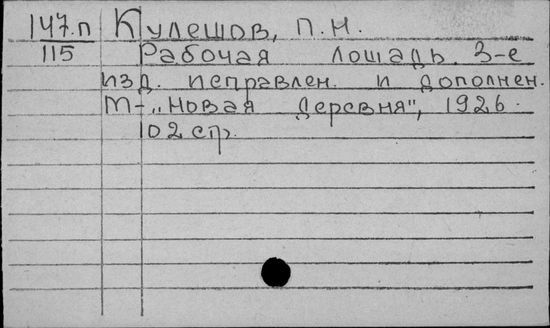 147.п Кулешов, П.Н.
115 Рабочая лошадь. 3-е
изд. исправлен. и дополнен.
М- „Новая деревня", 1926.
102 стр.